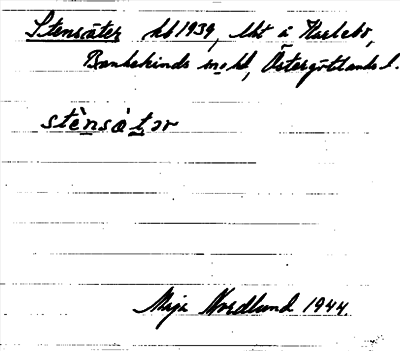 Stensäter hb 1939, lht å Harlebo,
Bankekinds snhd, Östergötlands l.
stènsä̀tər
Maja Nordlund 1944.